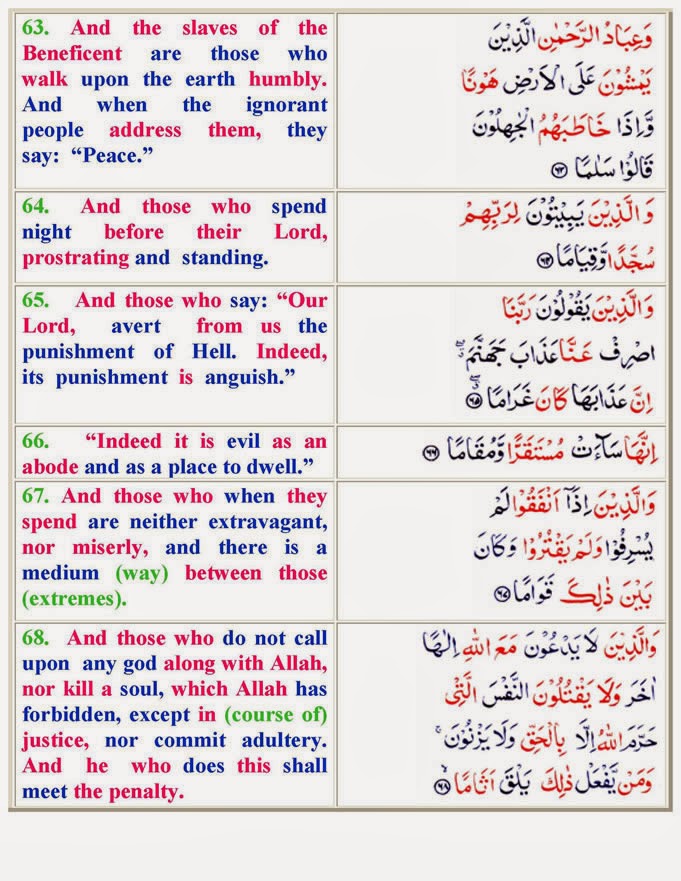 63. And the slaves of the
Beneficent are those who
walk upon the earth humbly.
And when the ignorant
people address them, they
say: “Peace.”
وَعِبَادُ الرَّحْمٰنِ الَّذِيْنَ
يَمْشُوْنَ عَلَى الْاَرْضِ هَوْنًا
وَّاِذَا خَاطَبَهُمُ الْجٰهِلُوْنَ
قَالُوْا سَلٰمًا ﴿۶۳﴾
64. And those who spend
night before their Lord,
prostrating and standing.
وَالَّذِيْنَ يَبِيْتُوْنَ لِرَبِّهِمْ
سُجَّدًا وَّقِيَامًا ﴿۶۴﴾
65. And those who say: “Our
Lord, avert from us the
punishment of Hell. Indeed,
its punishment is anguish.”
وَالَّذِيْنَ يَقُوْلُوْنَ رَبَّنَا
اصْرِفْ عَنَّا عَذَابَ جَهَنَّمَ ۖ
اِنَّ عَذَابَهَا كَانَ غَرَامًا ۖ ﴿۶۵﴾
66. “Indeed it is evil as an
abode and as a place to dwell.”
اِنَّهَا سَآءَتْ مُسْتَقَرًّا وَّمُقَامًا ﴿۶۶﴾
67. And those who when they
spend are neither extravagant,
nor miserly, and there is a
medium (way) between those
(extremes).
وَالَّذِيْنَ اِذَآ اَنْفَقُوْا لَمْ
يُسْرِفُوْا وَلَمْ يَقْتُرُوْا وَكَانَ
بَيْنَ ذٰلِكَ قَوَامًا ﴿۶۷﴾
68. And those who do not call
upon any god along with Allah,
nor kill a soul, which Allah has
forbidden, except in (course of)
justice, nor commit adultery.
And he who does this shall
meet the penalty.
وَالَّذِيْنَ لَا يَدْعُوْنَ مَعَ اللّٰهِ اِلٰهًا
اٰخَرَ وَلَا يَقْتُلُوْنَ النَّفْسَ الَّتِيْ
حَرَّمَ اللّٰهُ اِلَّا بِالْحَقِّ وَلَا يَزْنُوْنَ ۚ
وَمَنْ يَّفْعَلْ ذٰلِكَ يَلْقَ اَثَامًا ۙ ﴿۶۸﴾